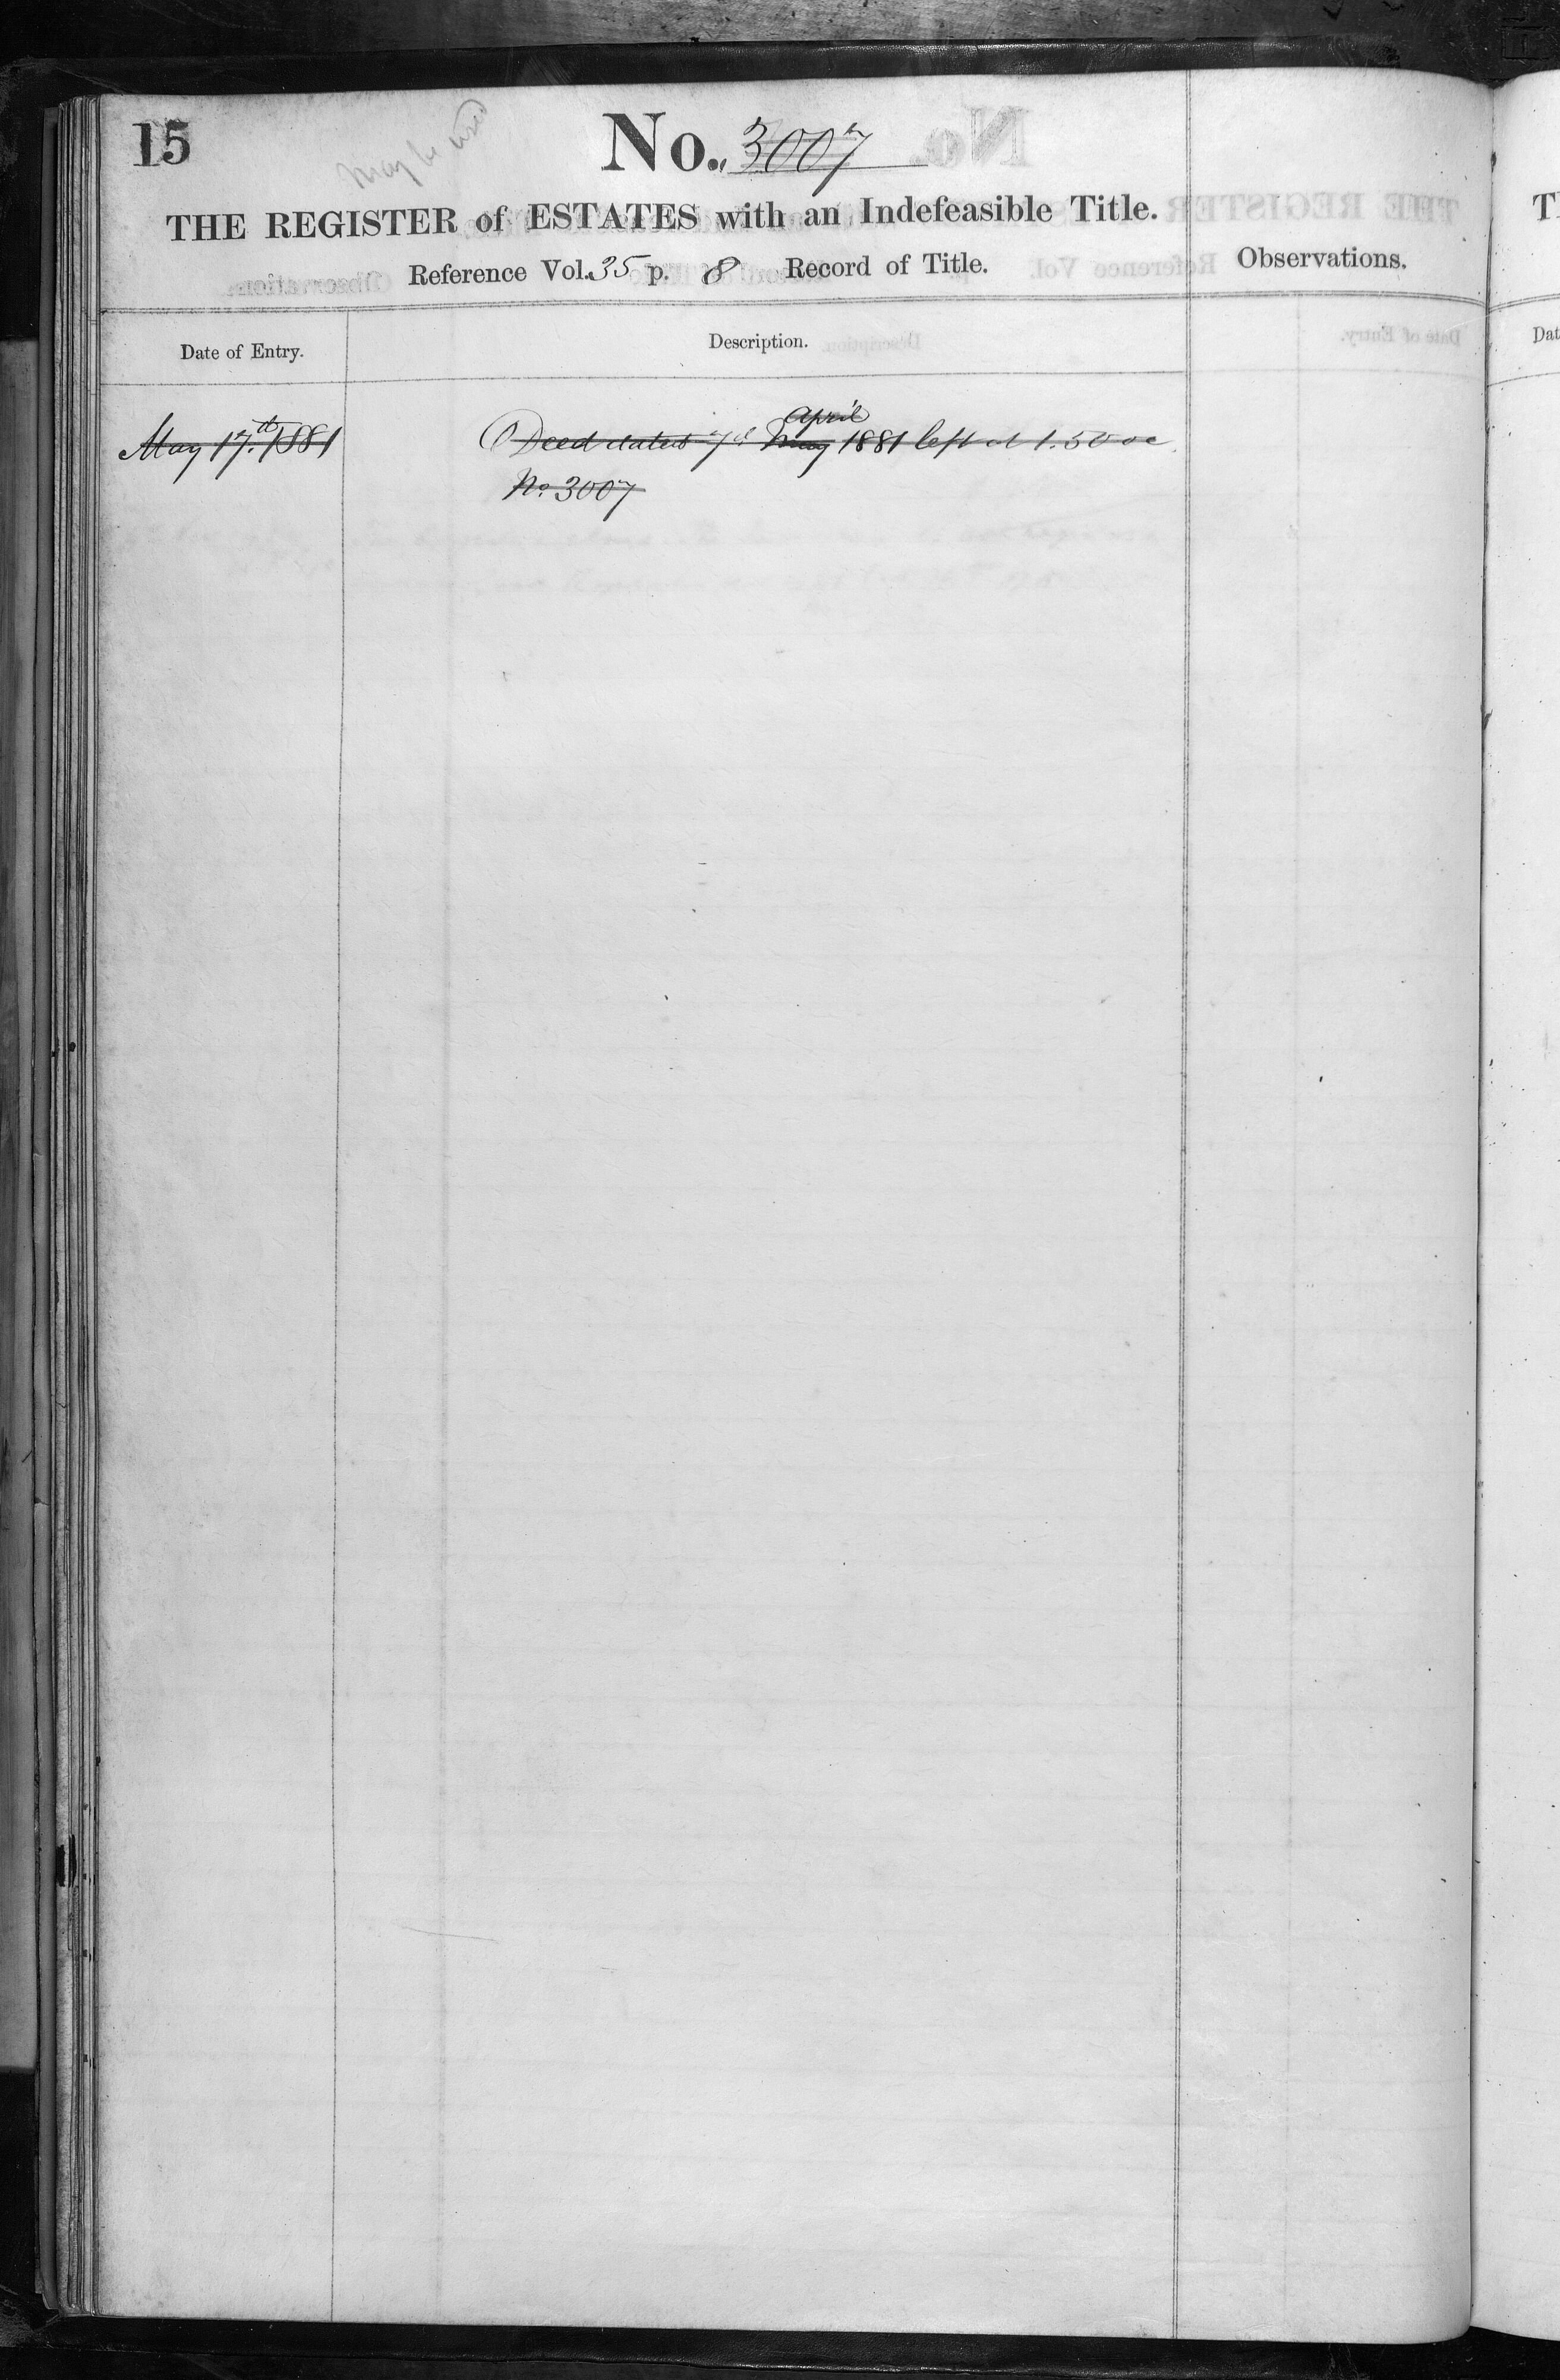 15
may be used
No. 3007
THE REGISTER of ESTATES with an Indefeasible Title.
Reference Vol. 35 p. 8 Record of Title.
Observations.
Date of Entry.
Description.
April
May 17.th 1881
Deed dated 7th May 1881 left at 1.50 oc
No. 3007